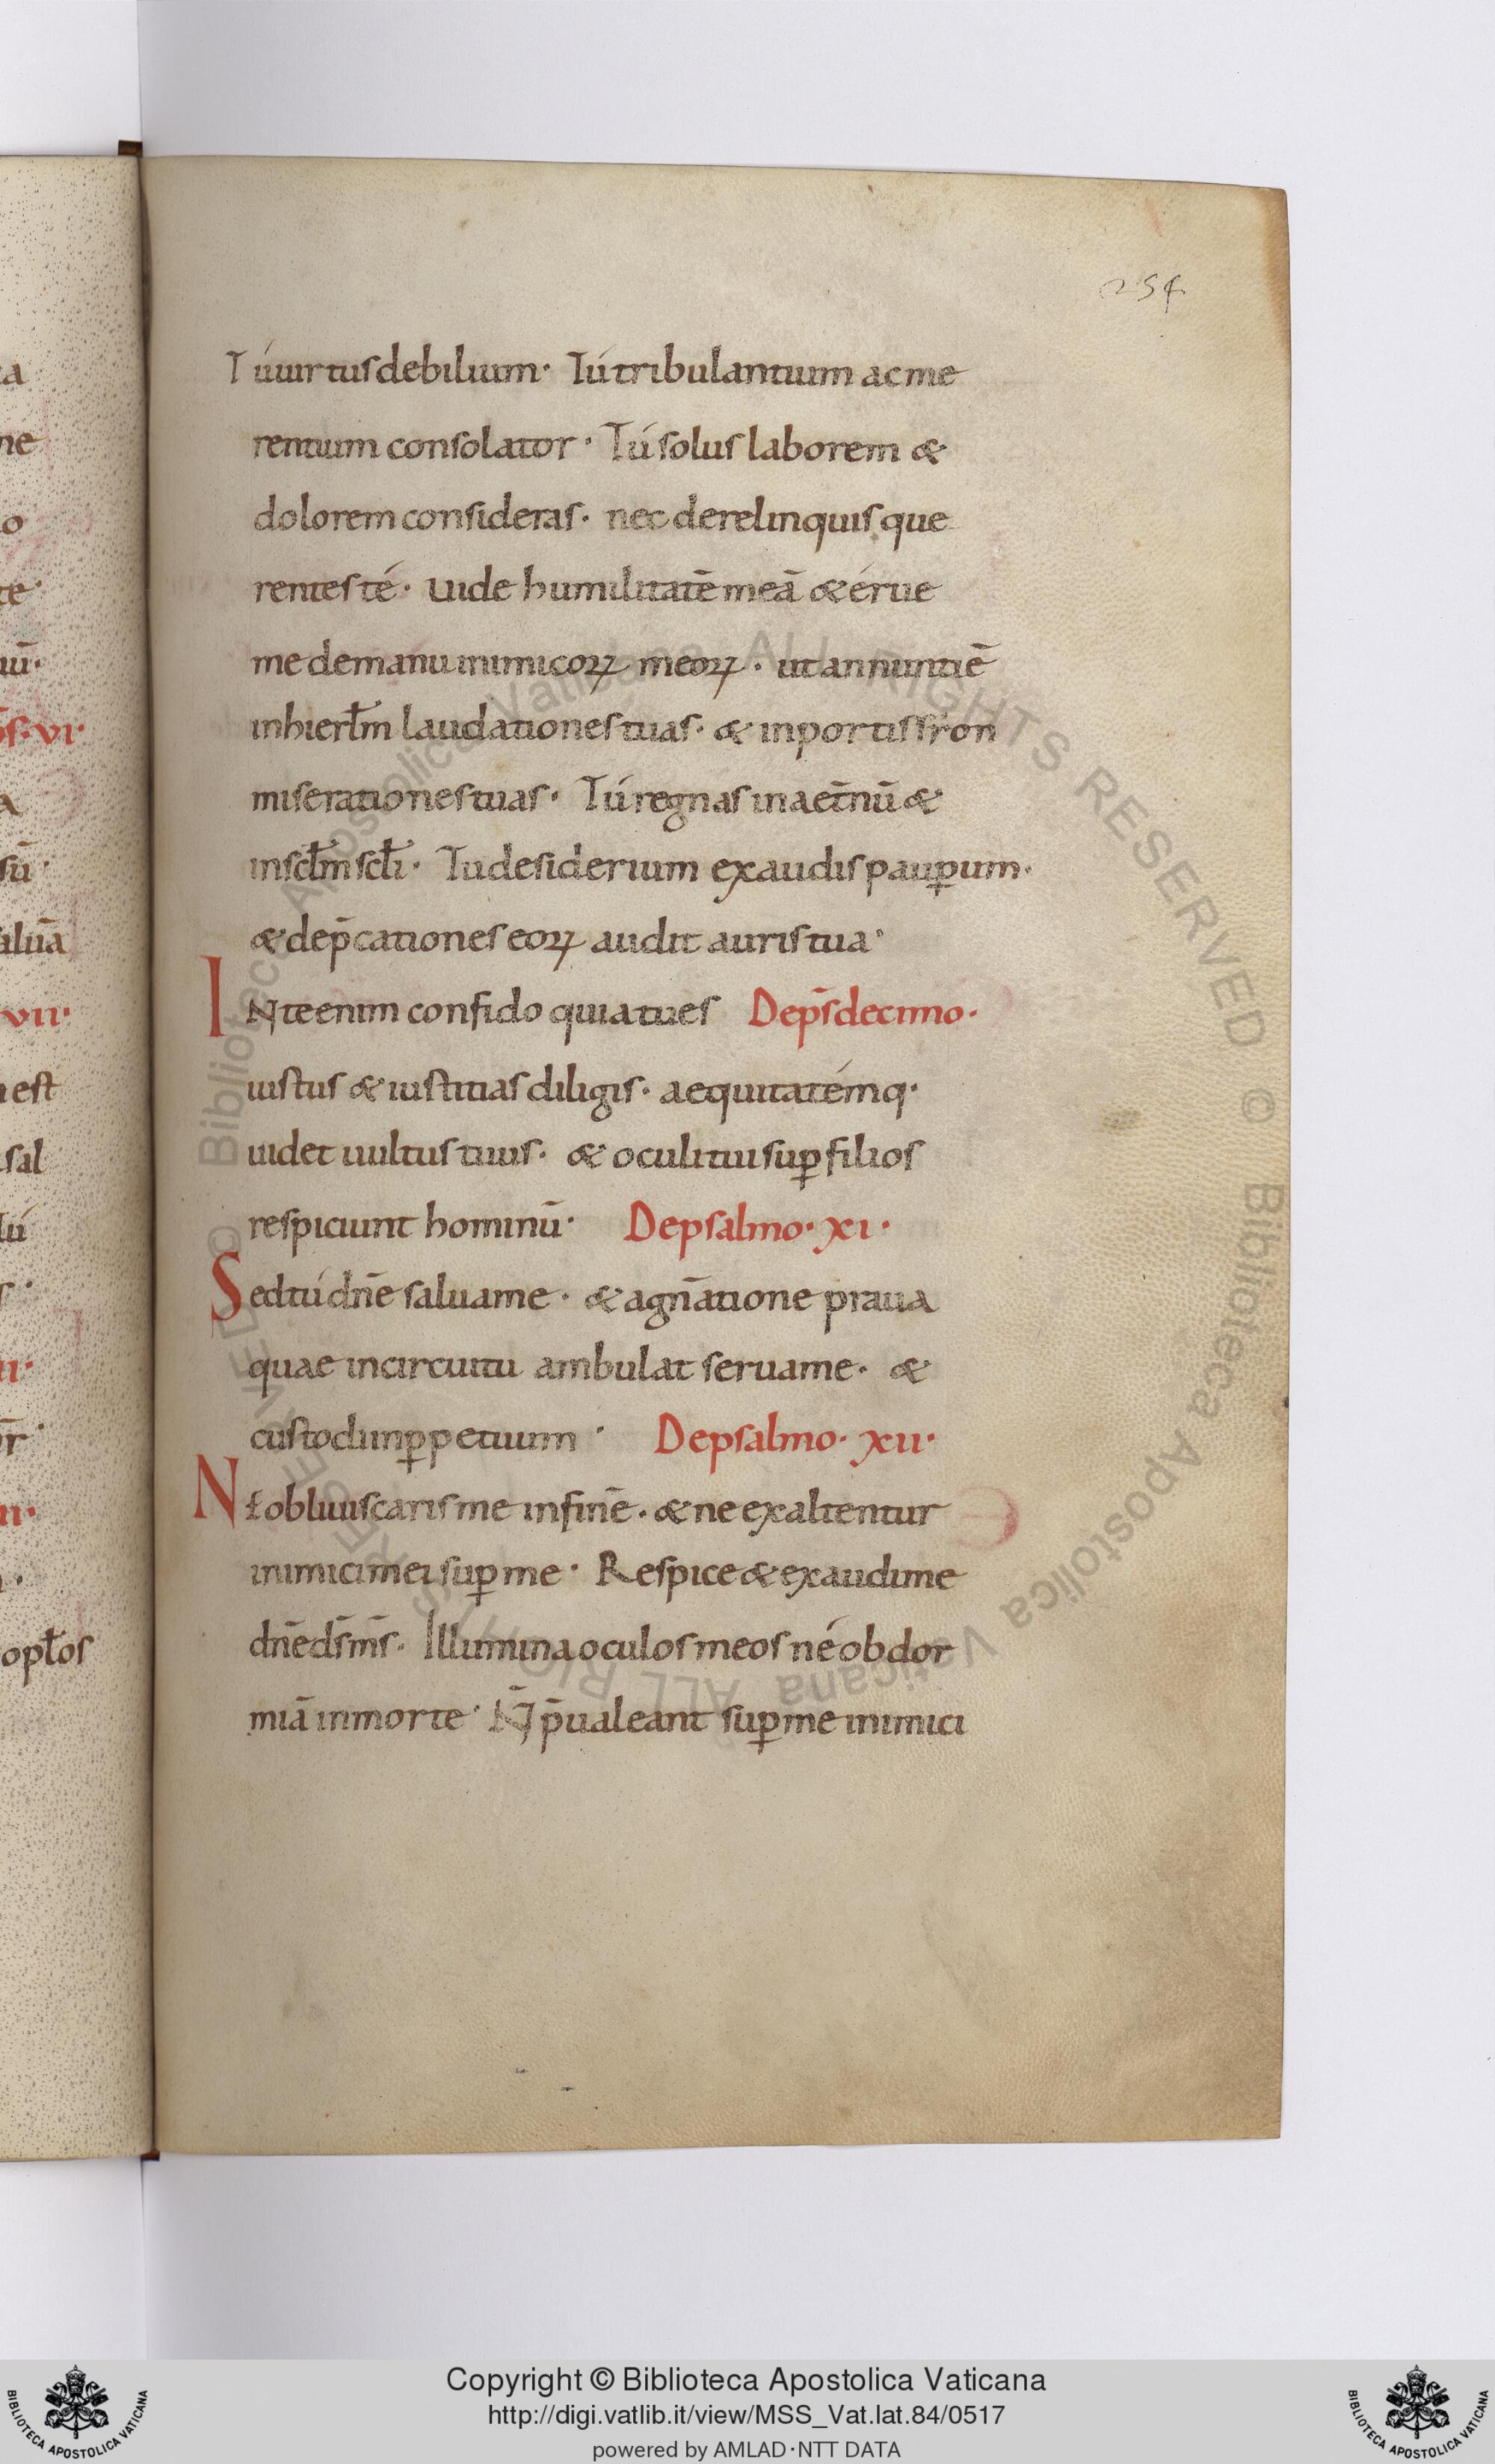 254
Tú uirtus debilium· Tú tribulantium ac me
rentium consolator· Tú solus laborem &
dolorem consideras· nec derelinquis que
rentes té· Uide humilitatē meā & érue
me de manu inimicoꝝ meoꝝ· ut annuntiē
in hierłm laudationes tuas· & in portis sion
miserationes tuas· Tú regnas in aet̄nū &
in scłm scłi· Tu desiderium exaudis pauꝑum·
& dep̄cationes eoꝝ audit auris tua·
IN te enim confido quia tu es De ps̄ decimo·
iustus & iustitias diligis· aequitatémq·
uidet uultus tuus· & oculi tui suꝑ filios
respiciunt hominū· De psalmo· xı·
Sed tú dn̄e salua me· & a gn̄atione praua
quae in circuitu ambulat serua me· &
custodi inꝑpetuum· De psalmo· xıı·
Nł obliuiscaris me in finē· & ne exaltentur
inimici mei suꝑ me· Respice & exaudi me
dn̄e ds̄ ms̄· Illumina oculos meos né obdor
miā in morte· N̄ p̄ualeant suꝑ me inimici
a
ne
o
te·
iū·
s̄· vı·
a
sū·
aluā
vıı·
est
sal
Tú
ıı·
r̄·
ıı·
opłos
© Biblioteca Apostolica Vaticana ALL RIGHTS RESERVED © Biblioteca Apostolica Vaticana ALL RIGHTS RESERVED
Copyright © Biblioteca Apostolica Vaticana
http://digi.vatlib.it/view/MSS_Vat.lat.84/0517
powered by AMLAD·NTT DATA
BIBLIOTECA APOSTOLICA VATICANA
BIBLIOTECA APOSTOLICA VATICANA